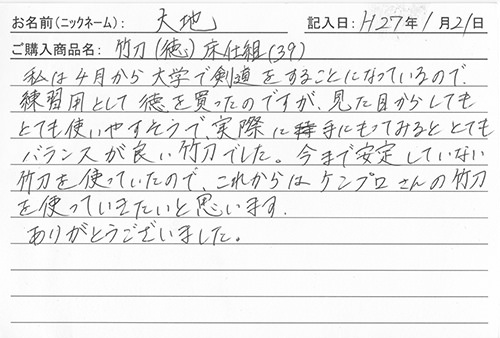 お名前(ニックネーム): 大地 記入日: H27年1月21日
ご購入商品名: 竹刀(徳)床仕組(39)
私は4月から大学で剣道をすることになっているので、
練習用として徳を買ったのですが、見た目からしても
とても使いやすそうで、実際に手にもってみるととても
バランスが良い竹刀でした。今まで安定していない
竹刀を使っていたので、これからはケンプロさんの竹刀
を使っていきたいと思います.
ありがとうございました。